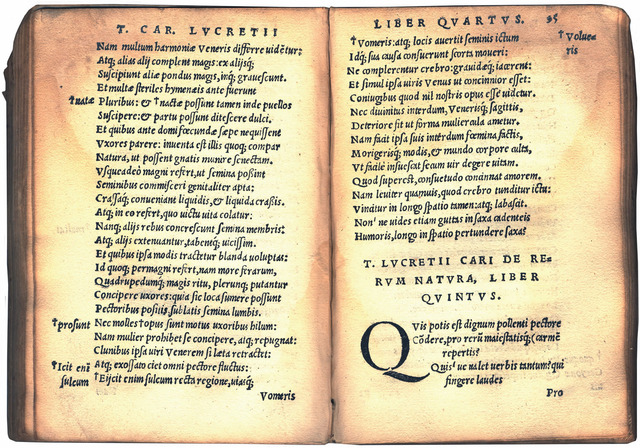 T. CAR. LVCRETII
Nam multum harmoniæ Veneris differre uidētur:
Atq; alias alij complent magis: ex alijsq;
Suscipiunt aliæ pondus magis, inq; grauescunt.
Et multæ steriles hymenæis ante fuerunt
†natæ Pluribus: & †nactæ possunt tamen inde puellos
Suscipere: & partu possunt ditescere dulci.
Et quibus ante domi fœcundæ sæpe nequissent
Vxores parere: inuenta est illis quoq; compar
Natura, ut possent gnatis munire senectam.
Vsqueadeò magni refert, ut semina possint
Seminibus commisceri genitaliter apta:
Crassaq; conueniant liquidis, & liquida crassis.
Atq; in eo refert, quo uictu uita colatur:
Nanq; alijs rebus concrescunt semina membris:
Atq; alijs extenuantur, tabentq; uicissim.
Et quibus ipsa modis tractetur blanda uoluptas:
Id quoq; permagni refert, nam more ferarum,
Quadrupedumq; magis ritu, plerunq; putantur
Concipere uxores: quia sic loca sumere possunt
Pectoribus positis, sublatis semina lumbis.
†prosunt Nec molles †opus sunt motus uxoribus hilum:
Nam mulier prohibet se concipere, atq; repugnat:
Clunibus ipsa uiri Venerem si læta retractet:
†Icit enī Atq; exossato ciet omni pectore fluctus:
sulcum †Eijcit enim sulcum recta regione, uiaq;
Vomeris
LIBER QVARTVS. 95
†Vomeris: atq; locis auertit seminis ictum †Volue
Idq; sua causa consuerunt scorta moueri: ris
Ne complerentur crebro: grauidæq; iacerent:
Et simul ipsa uiris Venus ut concinnior esset:
Coniugibus quod nil nostris opus esse uidetur.
Nec diuinitus interdum, Venerisq; sagittis,
Deteriore fit ut forma muliercula ametur.
Nam facit ipsa suis interdum fœmina factis,
Morigerisq; modis, & mundo corpore culta,
Vt facilè insuescat secum uir degere uitam.
Quod superest, consuetudo concinnat amorem.
Nam leuiter quamuis, quod crebro tunditur ictu:
Vincitur in longo spatio tamen: atq; labascit.
Nonn' ne uides etiam guttas in saxa cadenteis
Humoris, longo in spatio pertundere saxa?
T. LVCRETII CARI DE RE-
RVM NATVRA, LIBER
QVINTVS.
QVis potis est dignum pollenti pectore
Cōdere, pro rerū maiestatisq; (carmē
repertis?
Quis' ue ualet uerbis tantum? qui
fingere laudes
Pro